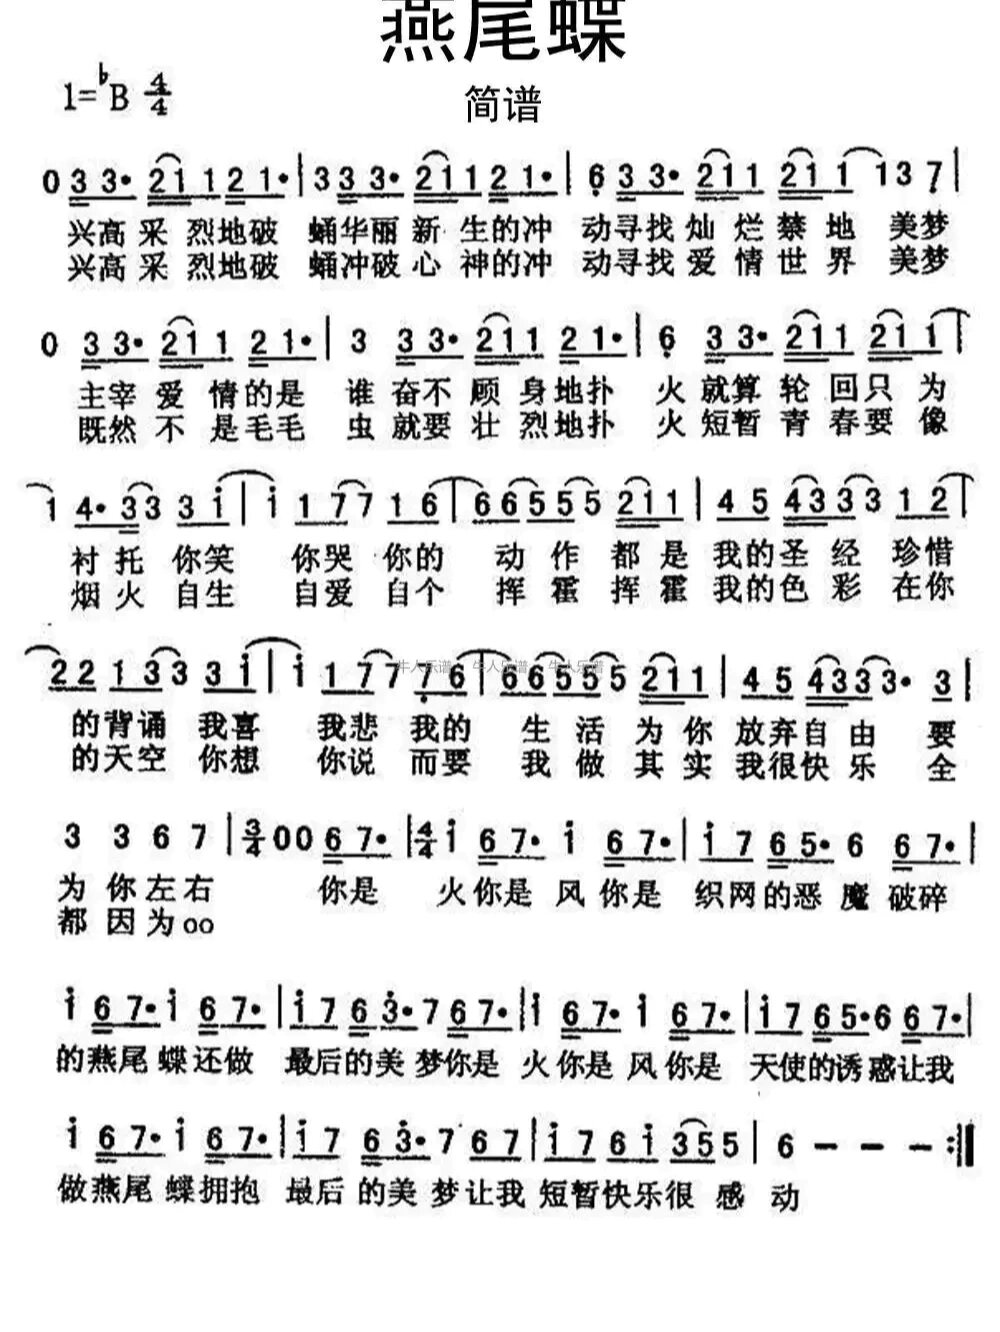 燕尾蝶
简谱
1=♭B 4/4
0 3 3· 2 1 1 2 1· | 3 3 3· 2 1 1 2 1· | 6 3 3· 2 1 1 2 1 1 1 3 7 |
兴高采烈地破 蛹华丽新生的冲 动寻找灿烂禁地 美梦
兴高采烈地破 蛹冲破心神的冲 动寻找爱情世界 美梦
0 3 3· 2 1 1 2 1· | 3 3 3· 2 1 1 2 1· | 6 3 3· 2 1 1 2 1 1 |
主宰爱情的是 谁奋不顾身地扑 火就算轮回只为
既然不是毛毛 虫就要壮烈地扑 火短暂青春要像
1 4· 3 3 3 i | i 1 7 7 1 6 | 6 6 5 5 5 2 1 1 | 4 5 4 3 3 3 3 1 2 |
衬托你笑 你哭你的 动作都是 我的圣经珍惜
烟火自生 自爱自个 挥霍挥霍 我的色彩在你
2 2 1 3 3 3 3 i | i 1 7 7 7 6 | 6 6 5 5 5 2 1 1 | 4 5 4 3 3 3 3· 3 |
牛人乐谱 牛人乐谱 牛人乐谱
的背诵我喜 我悲我的 生活为你 放弃自由 要
的天空你想 你说而要 我做其实 我很快乐 全
3 3 6 7 | 3/4 0 0 6 7· | 4/4 i 6 7· i 6 7· | i 7 6 5· 6 6 7· |
为你左右 你是 火你是风你是 织网的恶魔破碎
都因为oo
i 6 7· i 6 7· | i 7 6 3· 7 6 7· | i 6 7· i 6 7· | i 7 6 5· 6 6 7· |
的燕尾蝶还做 最后的美梦你是 火你是风你是 天使的诱惑让我
i 6 7· i 6 7· | i 7 6 3· 7 6 7 | i 7 6 i 3 5 5 | 6 – – – :‖
做燕尾蝶拥抱 最后的美梦让我 短暂快乐很感 动